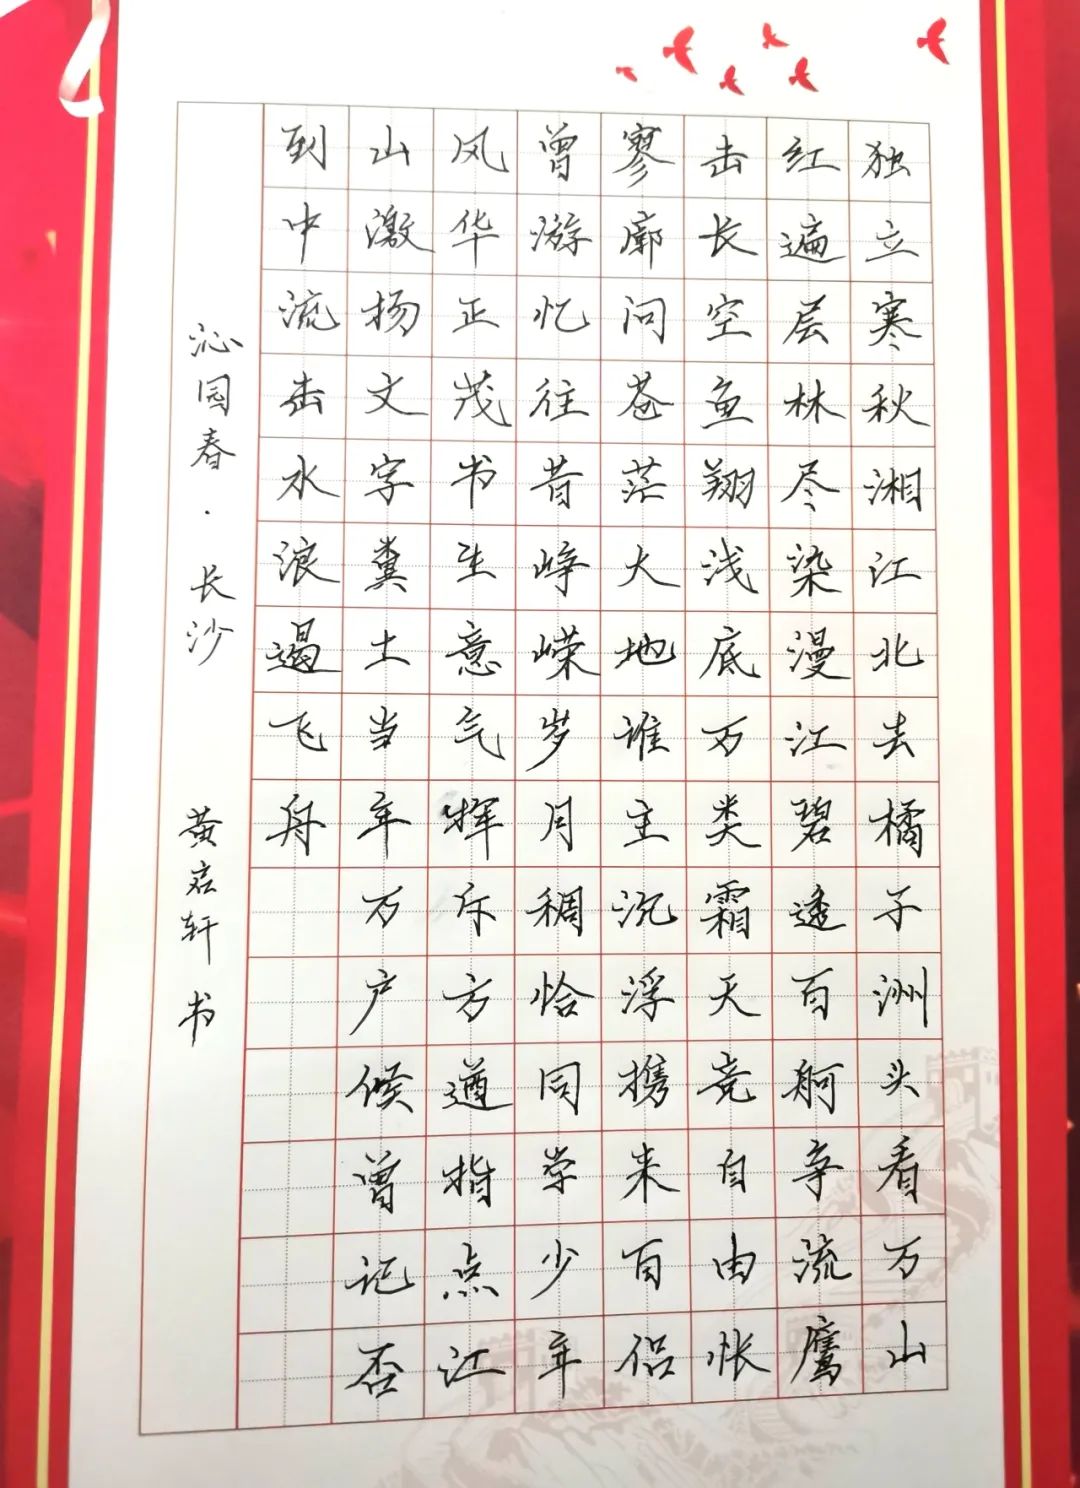 独立寒秋湘江北去橘子洲头看万山
红遍层林尽染漫江碧透百舸争流鹰
击长空鱼翔浅底万类霜天竞自由怅
寥廓问苍茫大地谁主沉浮携来百侣
曾游忆往昔峥嵘岁月稠恰同学少年
风华正茂书生意气挥斥方遒指点江
山激扬文字粪土当年万户候曾记否
到中流击水浪遏飞舟
沁园春·长沙 黄轩书